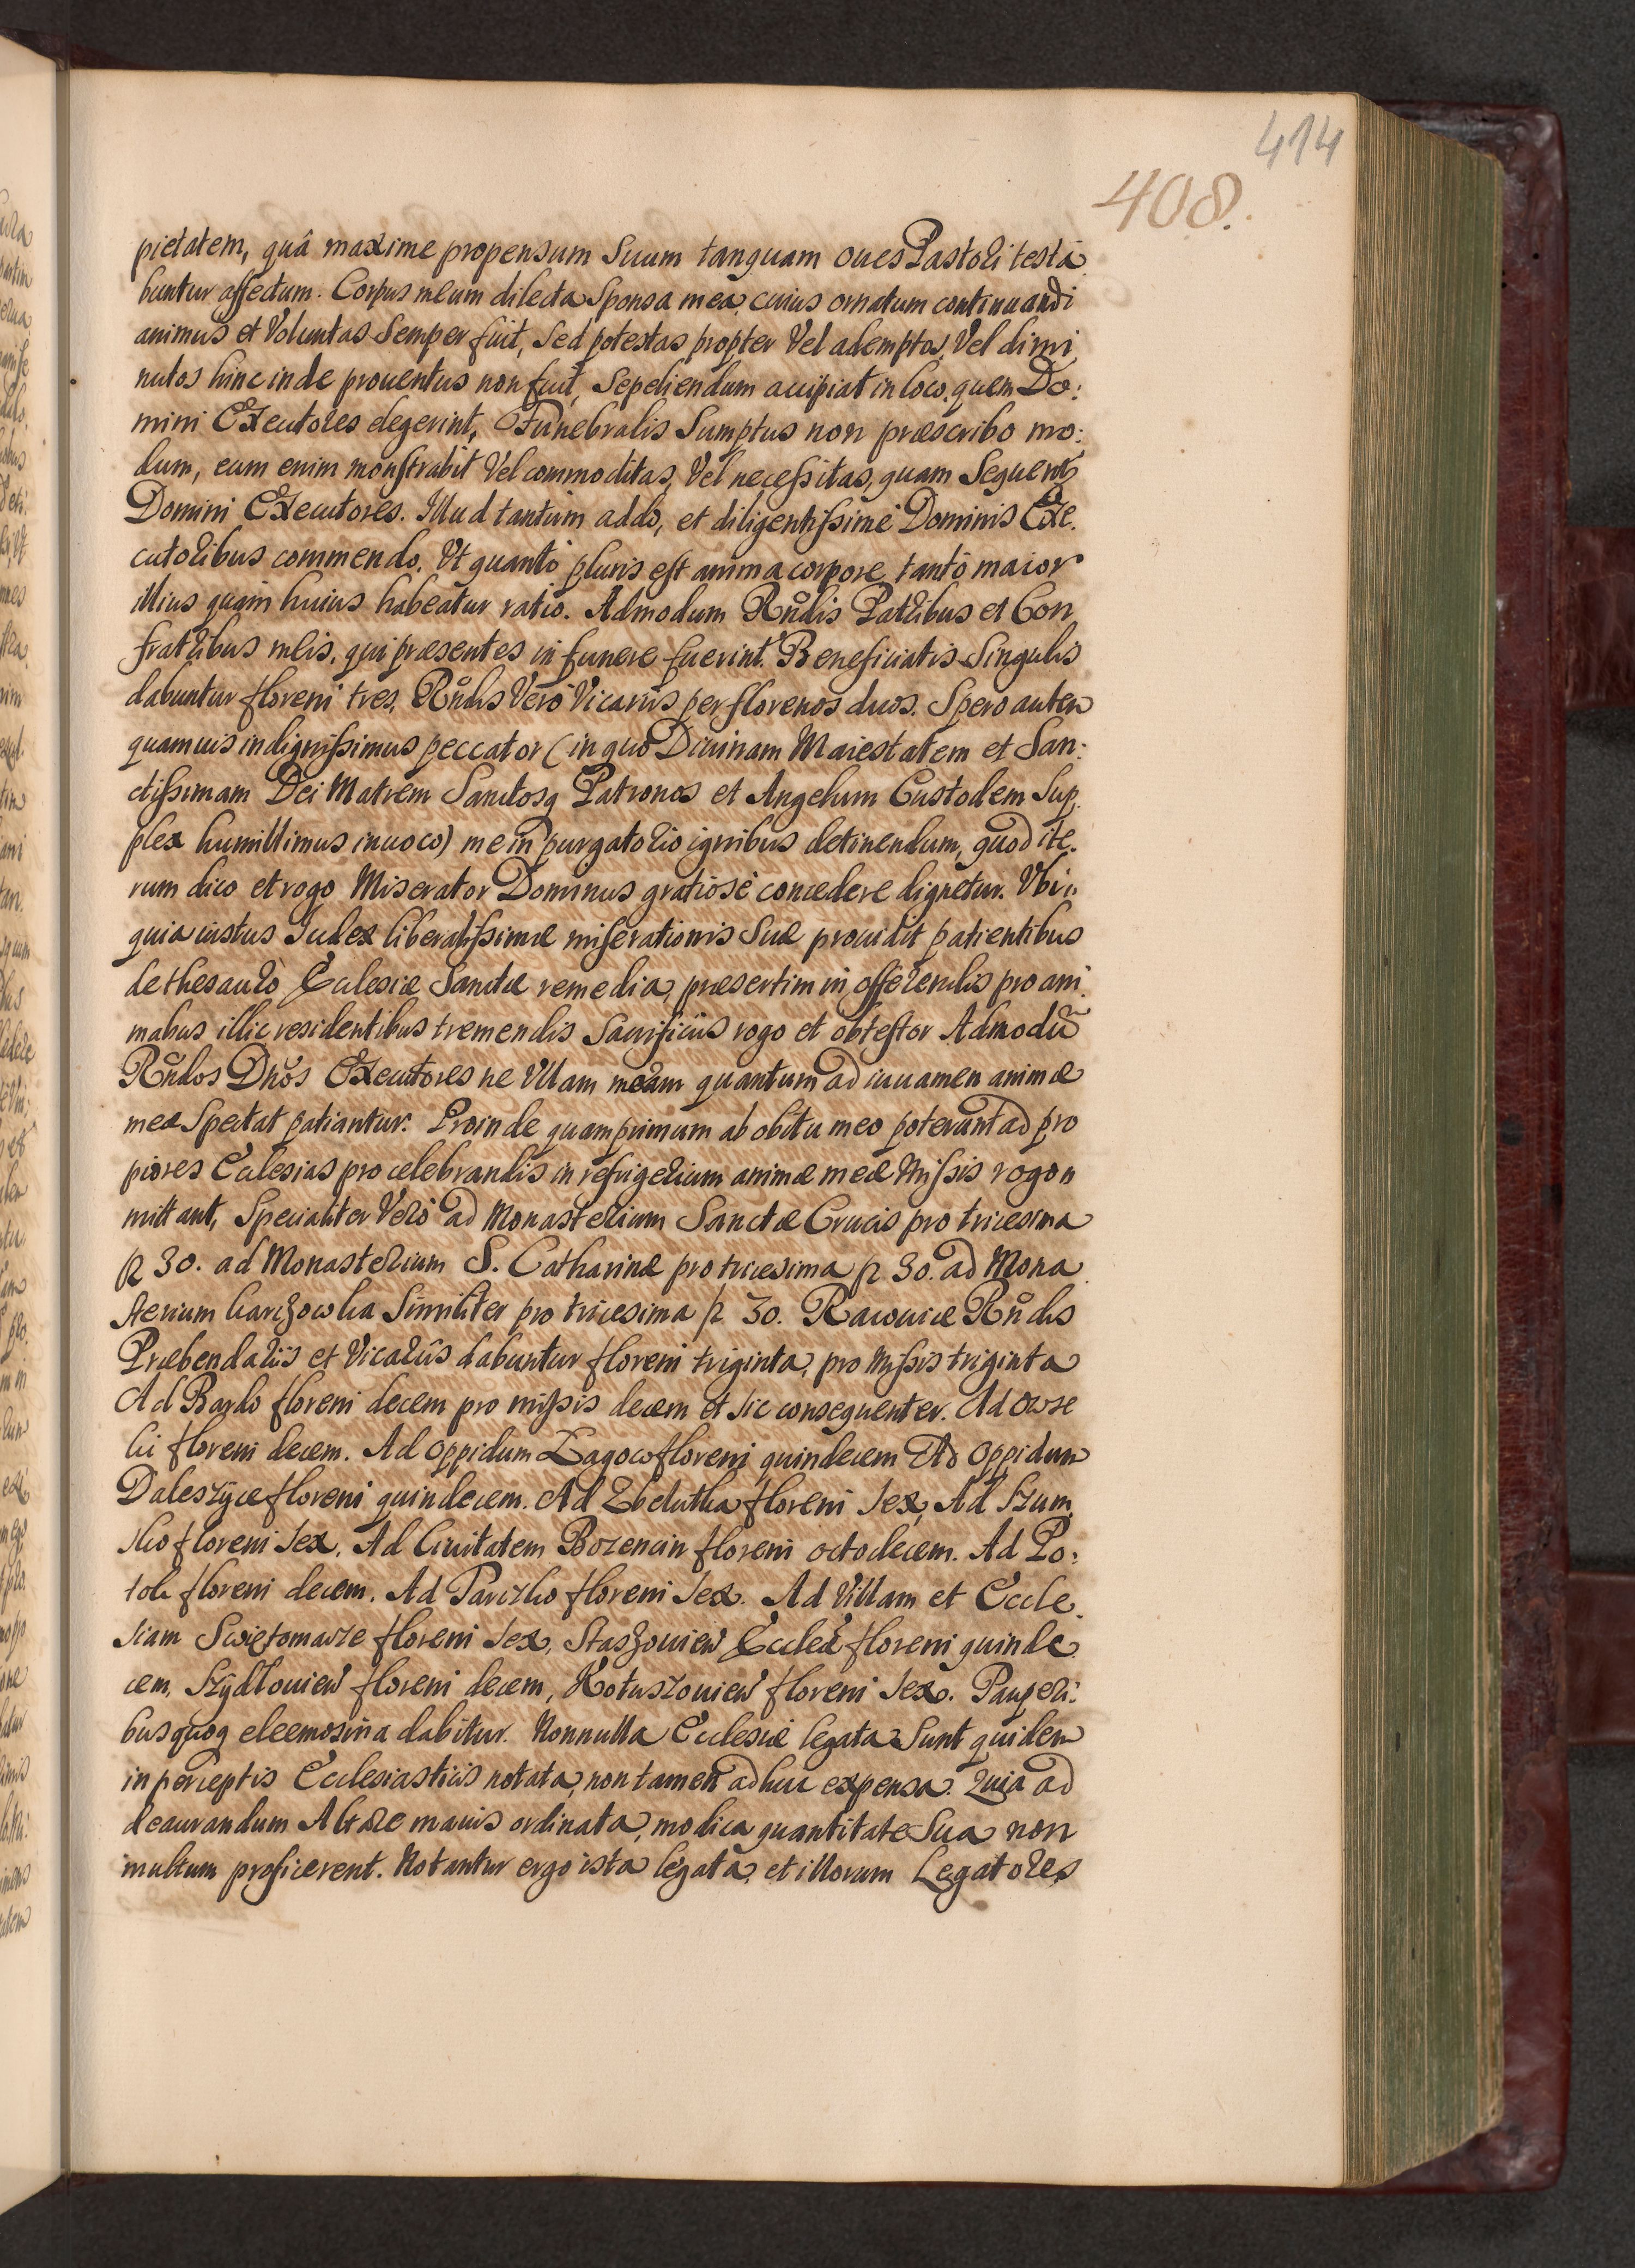 414
408.
pietatem, quâ maxime propensum Suum tanquam oues Pastori testa
buntur affectum. Corpus meum dilecta Sponsa mea, cuius ornatum continuandi
animus et Voluntas Semper fuit, Sed potestas propter Vel ademptos, Vel dimi
nutos hinc inde prouentus non fuit, Sepeliendum accipiat in loco, quem Do:
mini Executores elegerint, Funebralis Sumptus non præscribo mo:
dum, eum enim monstrabit Vel commoditas, Vel necessitas, quam Sequentr
Domini Executores. Illud tantum addo, et diligentissimè Dominis Exe.
cutoribus commendo, Vt quantò pluris est anima corpore, tantò maior
illius quàm huius habeatur ratio. Admodum Rndis Patribus et Con
fratribus meis, qui præsentes in funere fuerint. Beneficiatis Singulis
dabuntur floreni tres, Rndis Verò Vicariis per florenos duos. Spero autem
quamuis indignissimus peccator (in quo Diuinam Maiestatem et San:
ctissimam Dei Matrem Sanctosq Patronos et Angelum Custodem Sup
plex humillimus inuoco) me in purgatorio ignibus detinendum, quod ite.
rum dico et rogo Miserator Dominus gratiosè concedere dignetur. Vbi
quia iustus Iudex liberalissimæ miserationis Suæ prouidit patientibus
de thesauro Ecclesiæ Sanctæ remedia, præsertim in offerendis pro ani
mabus illic residentibus tremendis Sacrificiis rogo et obtestor Admodū
Rndos Dnos Executores ne Vllam meam quantum ad iuuamen animæ
meæ Spectat patiantur. Proinde quamprimum ab obitu meo poterunt ad pro
piores Ecclesias pro celebrandis in refrigerium animæ meæ Missis rogon
mittant, Specialiter Verò ad Monasterium Sanctæ Crucis pro tricesima
p 30. ad Monasterium S. Catharinæ pro tricesima p 30. ad Mona
sterium karczowka Similiter pro tricesima p 30. Racouiæ Rndis
Præbendariis et Vicariis dabuntur floreni triginta, pro Missis triginta
Ad Bardo floreni decem pro missis decem et sic consequenter. Ad Orze
lii floreni decem. Ad Oppidum Łagow floreni quindecem Ad Oppidum
Daleszyce floreni quindecem. Ad Zbelutka floreni Sex, Ad Szum
sko floreni Sex. Ad Ciuitatem Bozencin floreni octodecem. Ad Po:
tok floreni decem. Ad Parczko floreni Sex. Ad Villam et Eccle.
siam Swiętomarze floreni Sex, Staszouien Ecclea floreni quinde
cem, Szydłouien floreni decem, Kotuszouien floreni Sex. Pauperi:
bus quoq eleemosina dabitur. Nonnulla Ecclesiæ legata Sunt quidem
in perceptis Ecclesiasticis notata, non tamen adhuc expensa. Quia ad
deaurandum Altare maius ordinata, modica quantitate Sua non
multum proficerent. Notantur ergo ista legata, et illorum Legatores